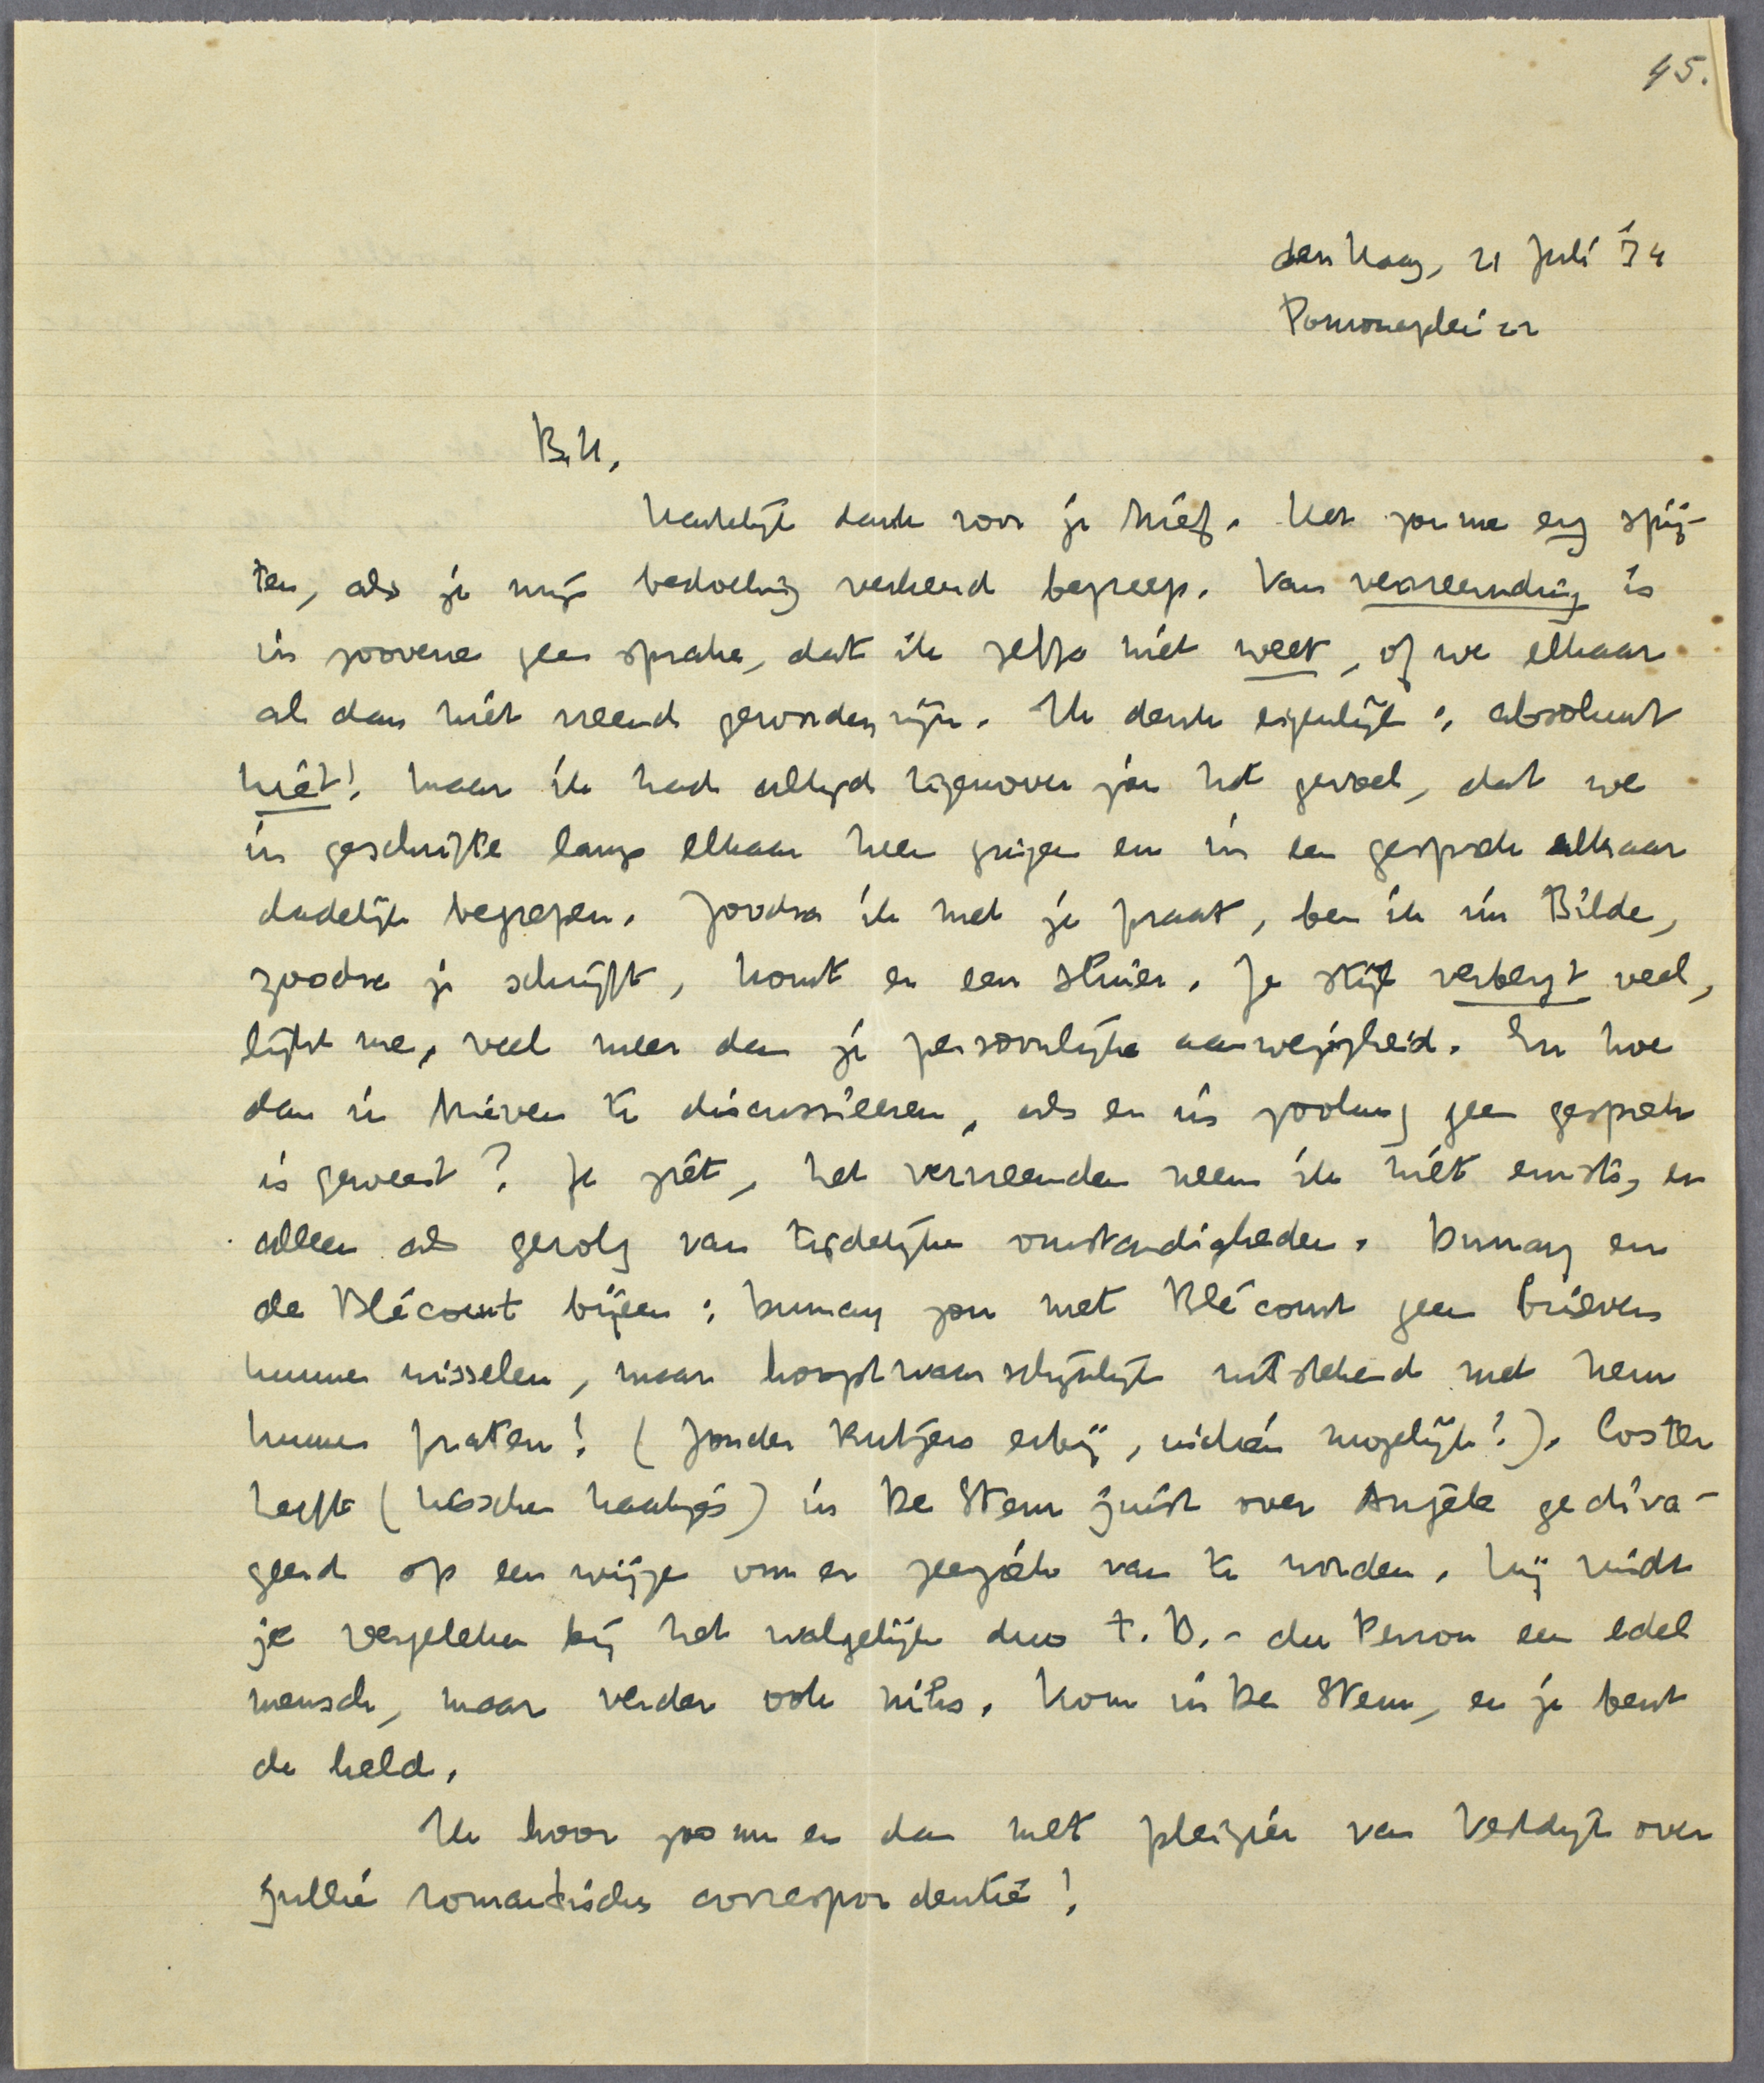 45.
den Haag, 21 Juli '34
Pomonaplein 22
B.H.,
Hartelijk dank voor je brief. Het zou me erg spij-
ten, als je mijn bedoeling verkeerd begreep. Van vervreemding is
in zooverre geen sprake, dat ik zelfs niet weet, of we elkaar
al dan niet vreemd geworden zijn. Ik denk eigenlijk: absoluut
niet! Maar ik had altijd tegenover jou het gevoel, dat we
in geschrifte langs elkaar heen gingen en in een gesprek elkaar
dadelijk begrepen. Zoodra ik met je praat, ben ik im Bilde,
zoodra je schrijft, komt er een sluier. Je stijl verbergt veel,
lijkt me, veel meer dan je persoonlijke aanwezigheid. En hoe
dan in brieven te discussieeren, als er in zoolang geen gesprek
is geweest? Je ziet, het vervreemden neem ik niet ernstig en
alleen als gevolg van tijdelijke omstandigheden. Dumay en
de Blécourt bijeen: Dumay zou met Blécourt geen brieven
kunnen wisselen, maar hoogstwaarschijnlijk uitstekend met hem
kunnen praten! (Zonder Rutgers erbij, indien mogelijk!). Coster
heeft (tusschen haakjes) in De Stem juist over Angèle gediva-
geerd op een wijze om er zeeziek van te worden. Hij vindt
je vergeleken bij het walgelijke duo t.B. - du Perron een edel
mensch, maar verder ook niks. Kom in De Stem, en je bent
de held.
Ik hoor zoo nu en dan met pleizier van Vestdijk over
jullie romantische correspondentie!